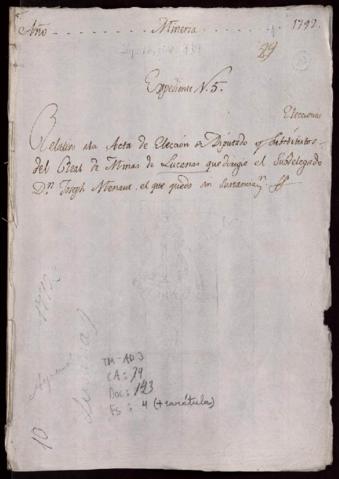 Año . . . . . . . . . . Mineria . . . . . . . . . 1792.
89
Expediente N. 5.
Elecciones
Relativo ala Acta de Elección de Diputado y Substitutos
del Real de Minas de Lucanas que dirigio el Subdelegado
Dn. Joseph Menaut, el que quedo sin sustanciarn.
TM-AD3
CA: 79
Doc: 143
Fs: 4 (+ carátula)
10